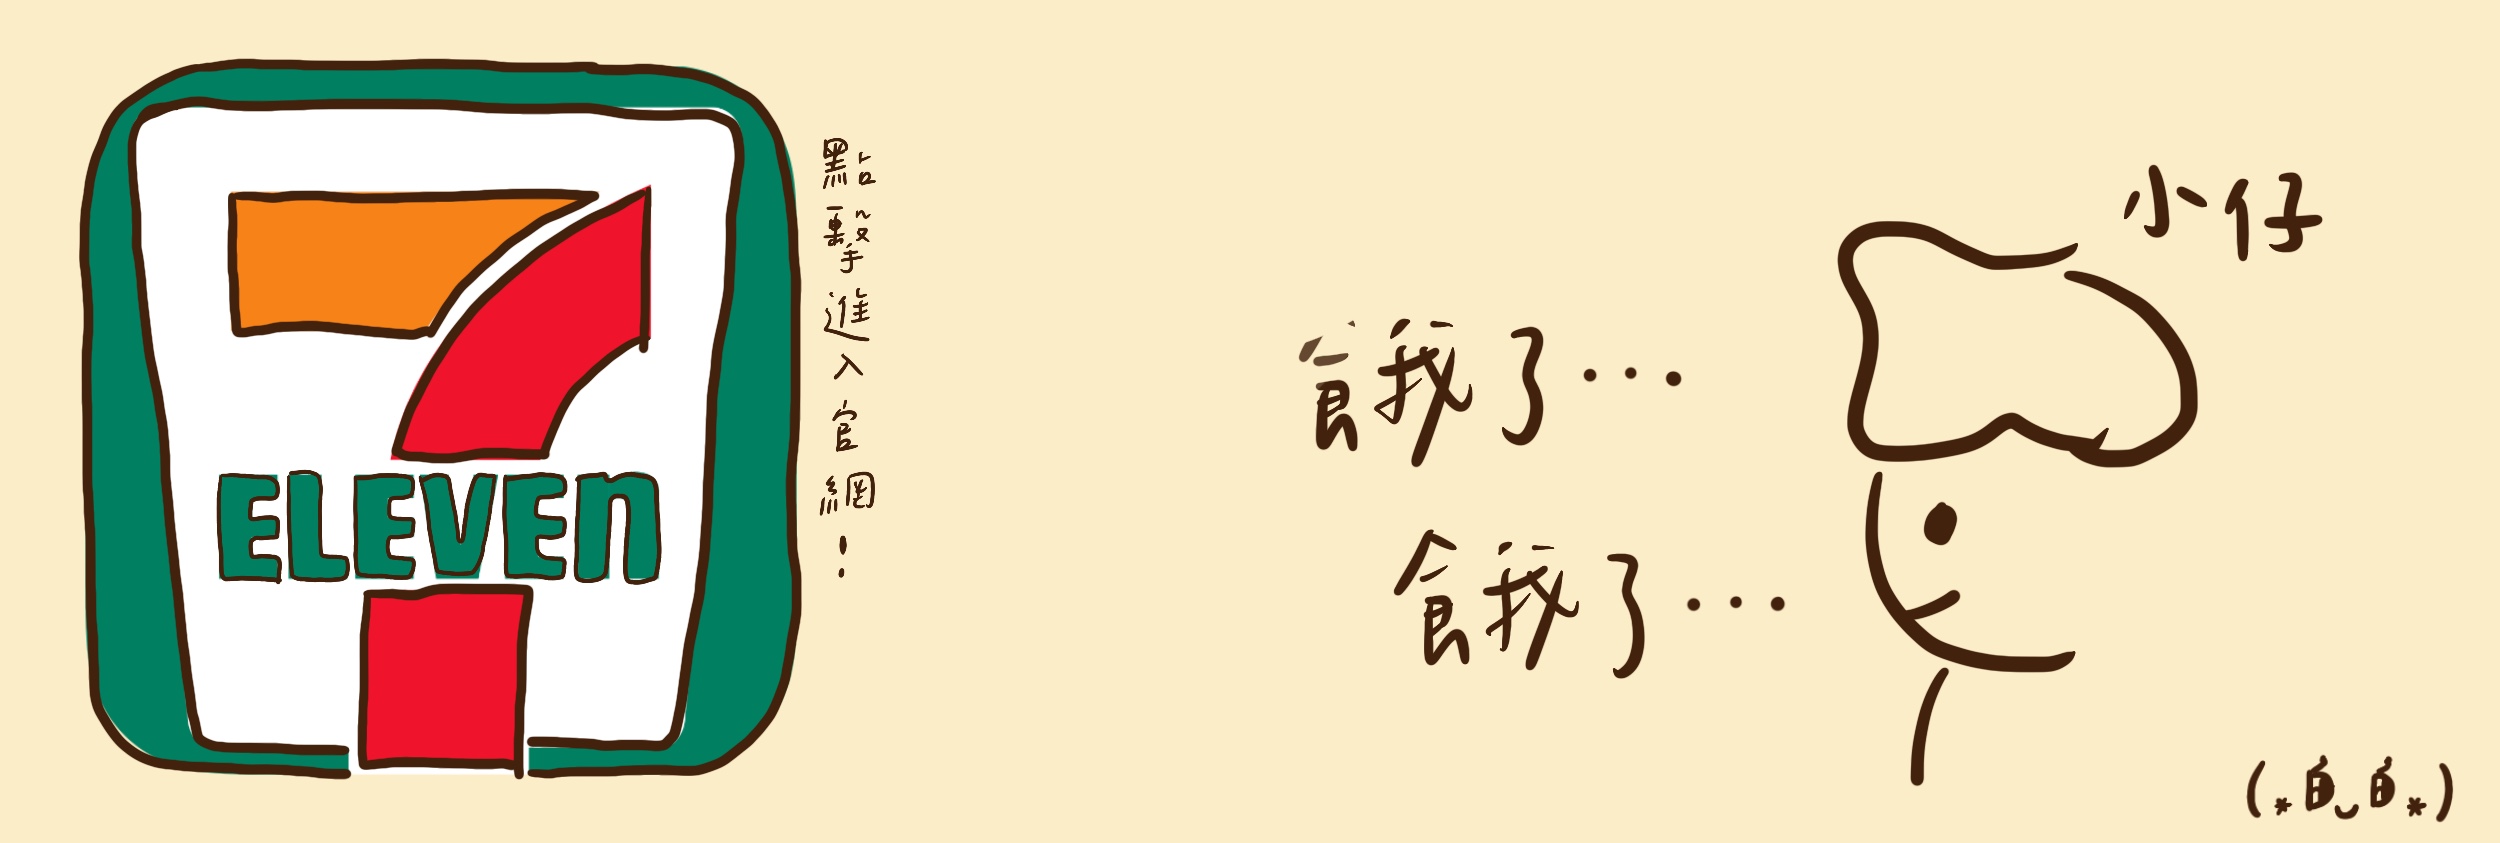 7
ELEVEn
點擊進入官網！
小仔
餓了...
餓了...